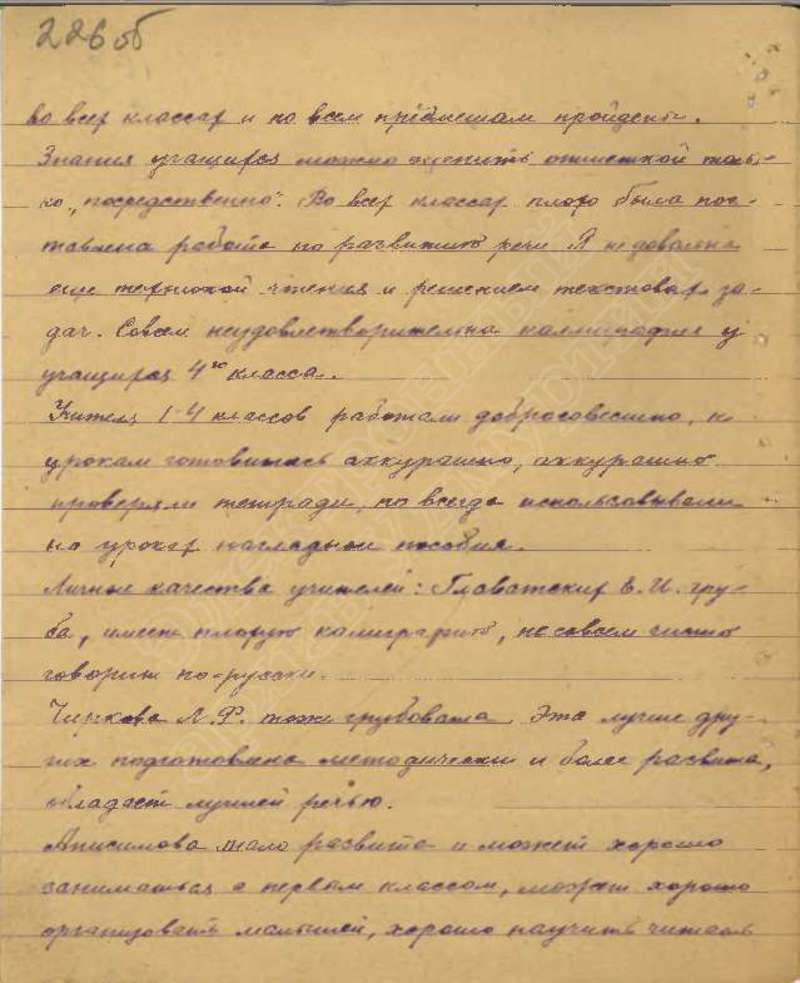 226об
во всех классах и по всем предметам пройдены.
Знания учащихся можно оценить отметкой толь-
ко „посредственно". Во всех классах плохо была пос-
тавлена работа по развитию речи. Я недовольна
еще техникой чтения и решением текстовых за-
дач. Совсем неудовлетворительна каллиграфия у
учащихся 4го класса.
Учителя 1-4 классов работали добросовестно, к
урокам готовились аккуратно, аккуратно
проверяли тетради, но всегда использовывали
на уроках наглядные пособия.
Личные качества учителей: Главатских Е. И. гру-
ба, имеет плохую калиграфию, не совсем чисто
говорит по-русски.
Чиркова Л. Ф. тоже грубовата. Эта лучше дру-
гих подготовлена методически и более развита,
обладает лучшей речью.
Анисимова мало развита и может хорошо
заниматься с первым классом, может хорошо
организовать малышей, хорошо научить читать